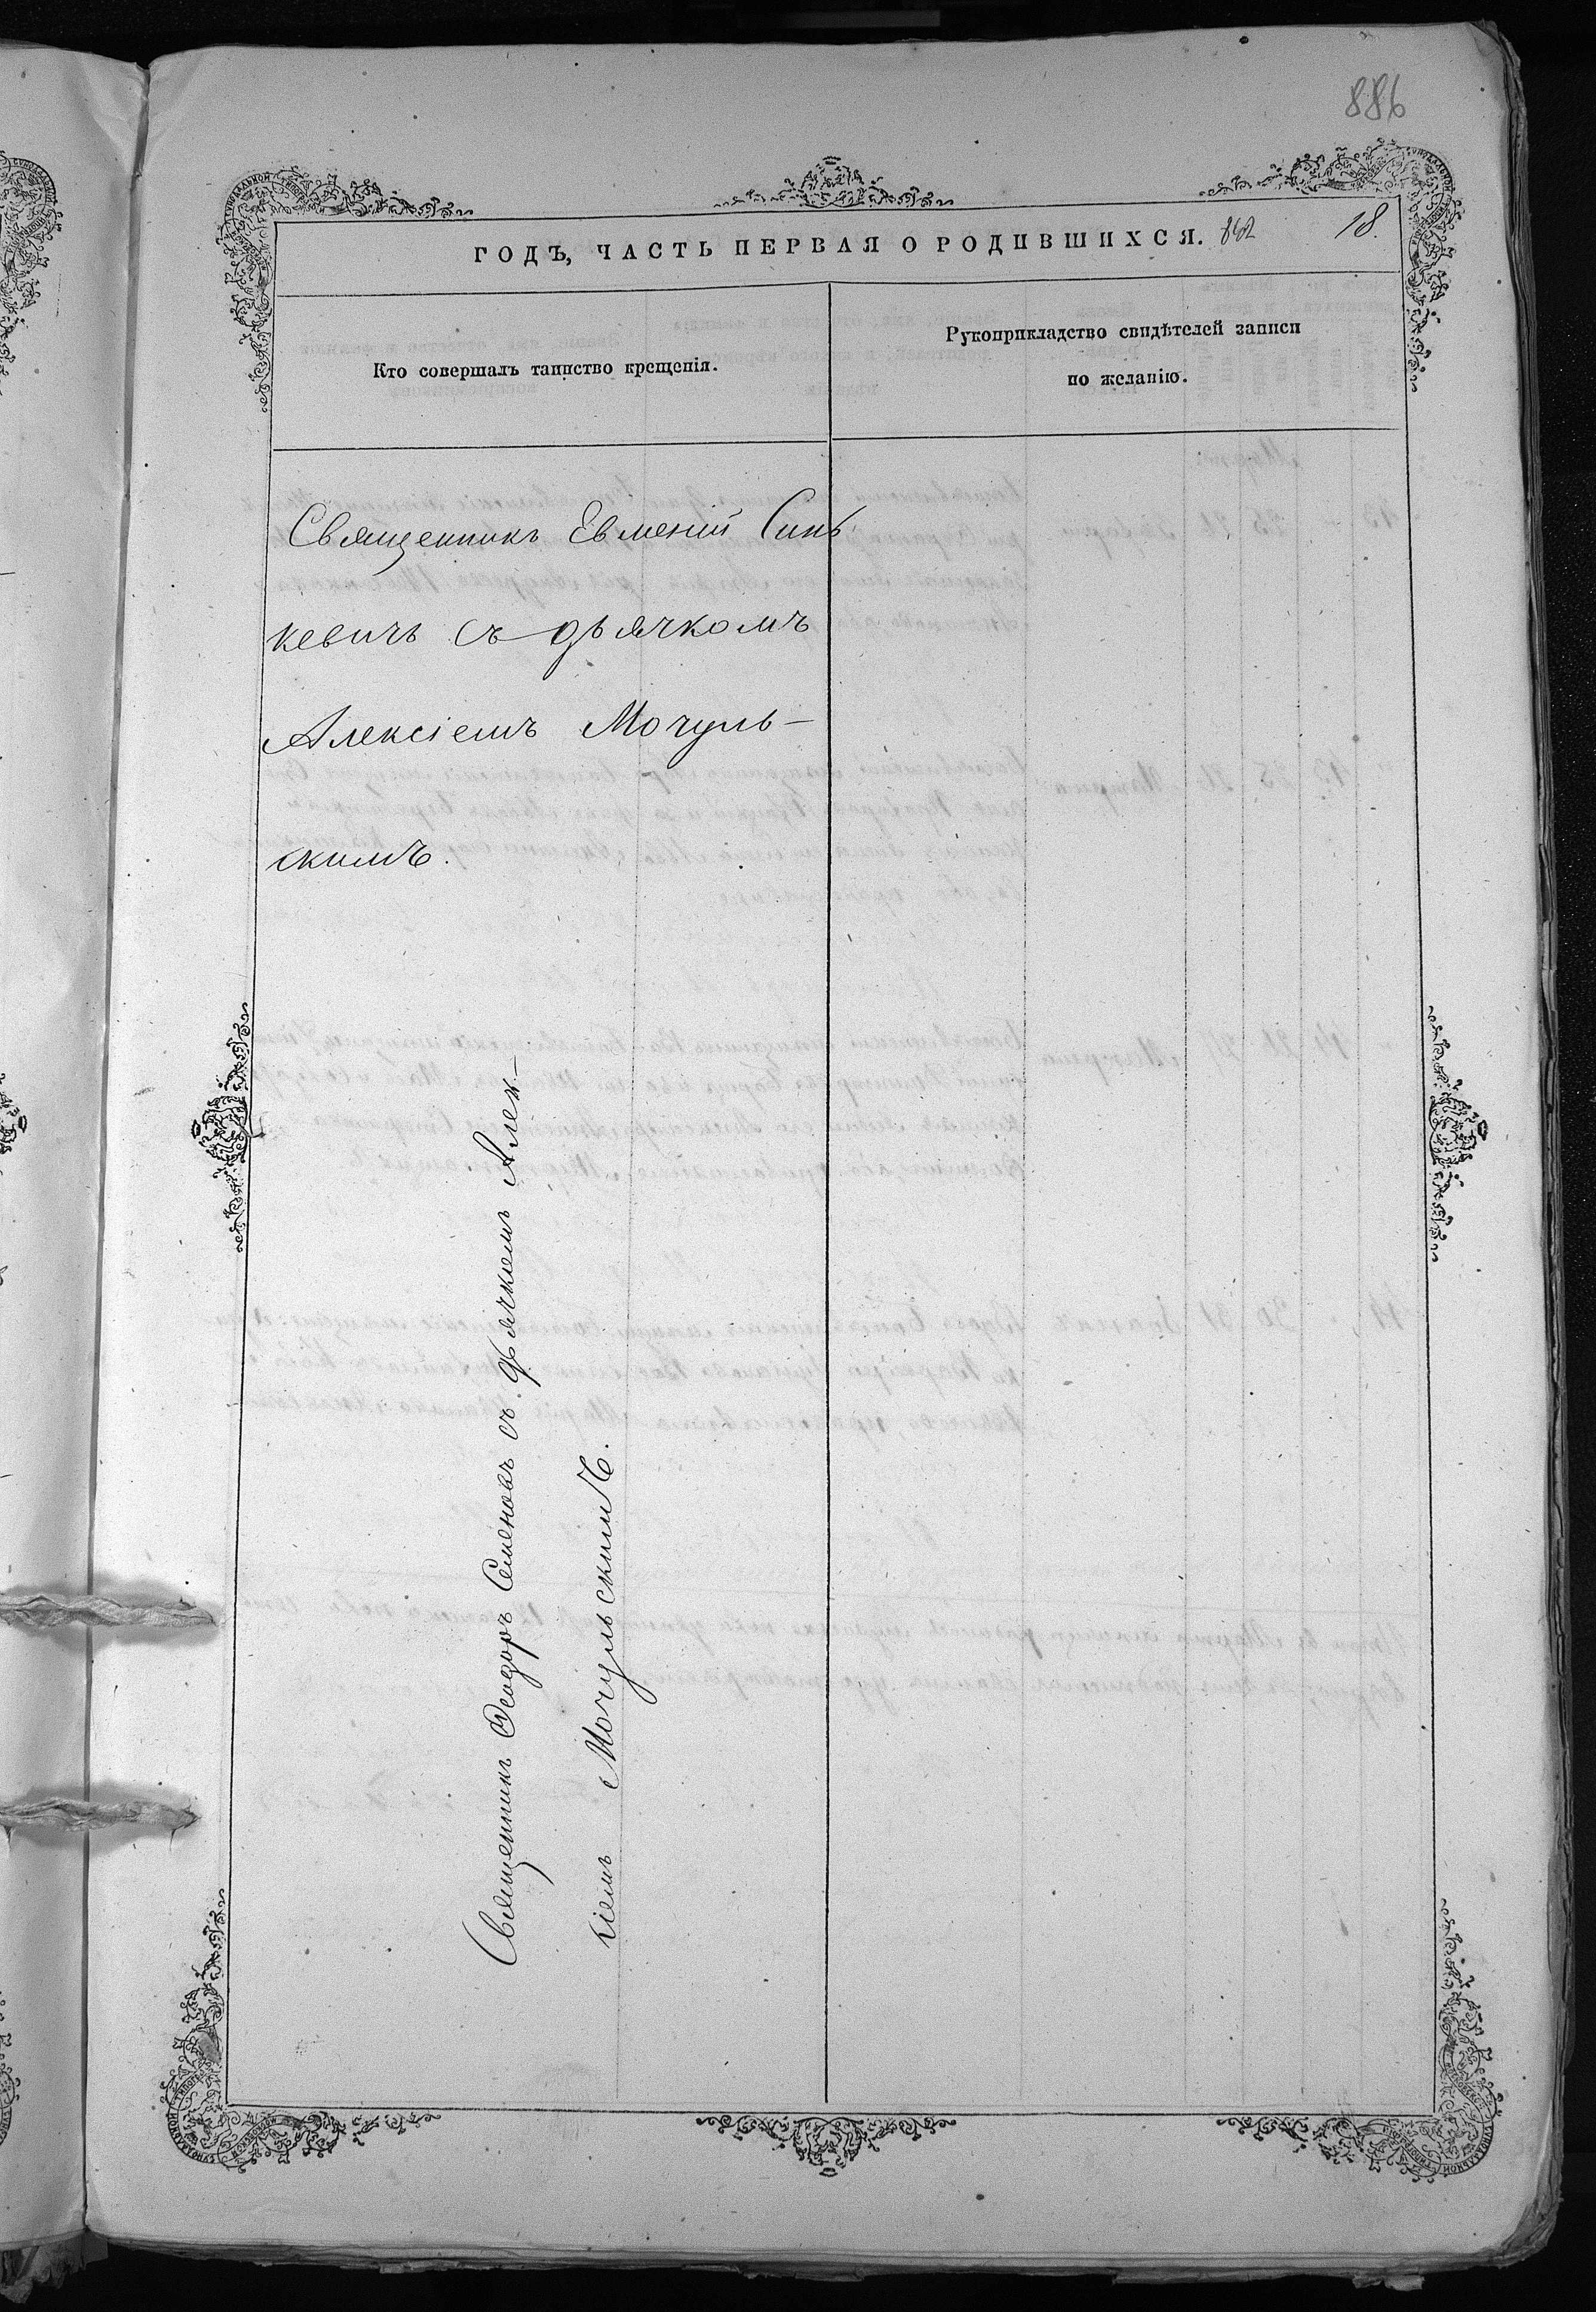 886
ГОДЪ, ЧАСТЬ ПЕРВАЯ О РОДИВШИХСЯ.
18.
Кто совершалъ таинство крещенія.
Рукоприкладство свидѣтелей записи
по желанію.
Священникъ Евменій Синь
кевичъ съ дьячкомъ
Алексіемъ Мочуль-
скимъ.
Священникъ Ѳеодоръ Семеновъ съ дьячкомъ Алек-
сіемъ Мочульскимъ.